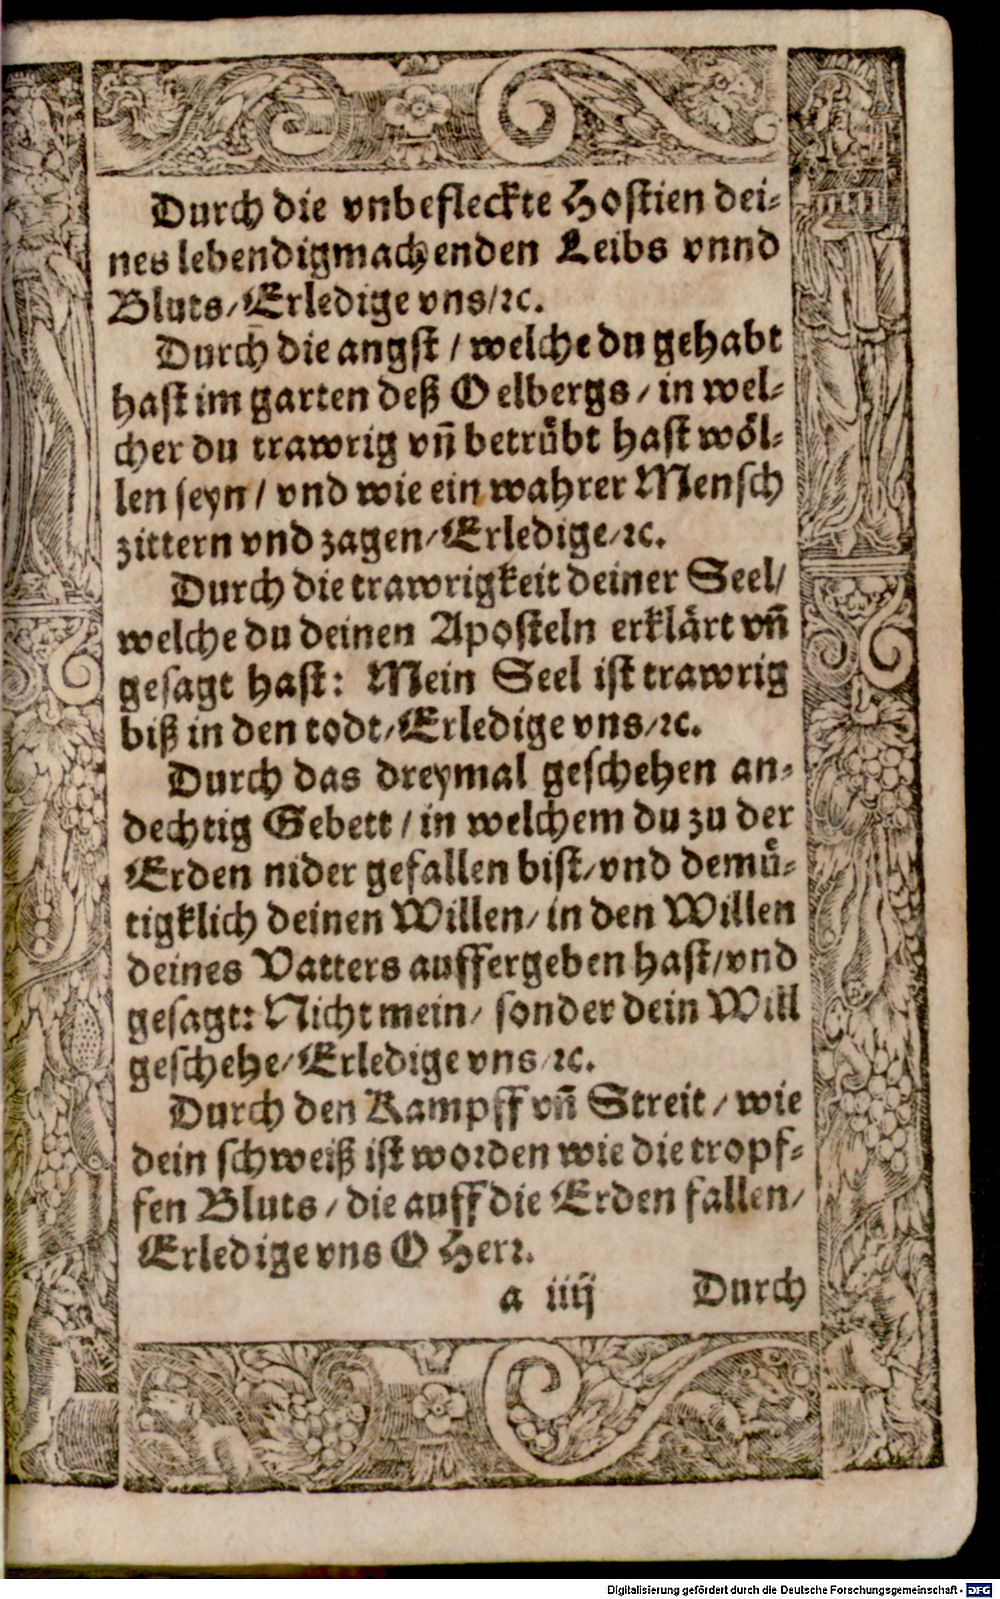 Durch die vnbefleckte Hostien dei-
nes lebendigmachenden Leibs vnnd
Bluts/ Erledige vns/ꝛc.
Durch die angst / welche du gehabt
hast im garten deß Oelbergs / in wel-
cher du trawrig vn̄ betruͤbt hast woͤl-
len seyn / vnd wie ein wahrer Mensch
zittern vnd zagen/ Erledige/ꝛc.
Durch die trawrigkeit deiner Seel/
welche du deinen Aposteln erklaͤrt vn̄
gesagt hast: Mein Seel ist trawrig
biß in den todt/ Erledige vns/ꝛc.
Durch das dreymal geschehen an-
dechtig Gebett / in welchem du zu der
Erden nider gefallen bist/ vnd demuͤ-
tigklich deinen Willen/ in den Willen
deines Vatters auffergeben hast/ vnd
gesagt: Nicht mein/ sonder dein Will
geschehe/ Erledige vns/ꝛc.
Durch den Kampff vn̄ Streit / wie
dein schweiß ist woꝛden wie die tropf-
fen Bluts / die auff die Erden fallen/
Erledige vns O Herꝛ.
a iiij Durch
Digitalisierung gefördert durch die Deutsche Forschungsgemeinschaft - DFG